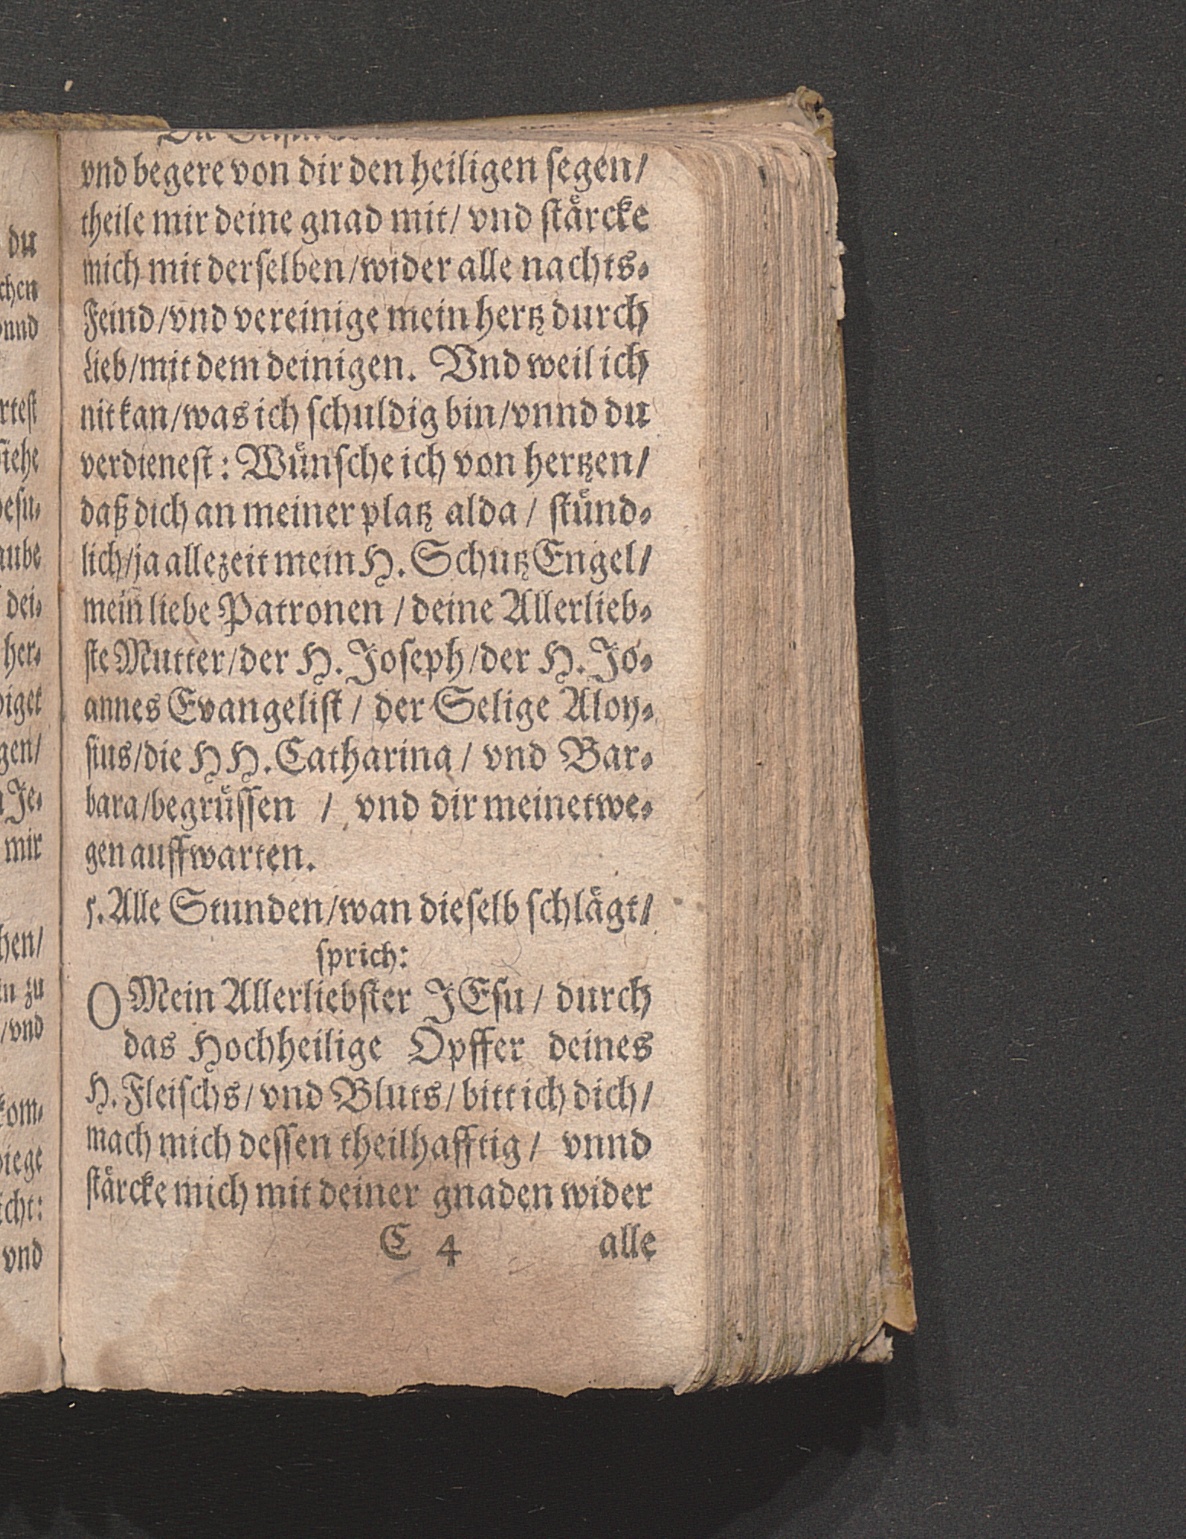 du
chen
vnnd
rtest
siehe
besu-
aube
dei-
her-
diget
gen/
Je-
mir
hen/
in zu
/vnd
kom-
icht:
vnd
vnd begere von dir den heiligen segen/
theile mir deine gnad mit/ vnd stårcke
mich mit derselben/wider alle nachts-
Feind/vnd vereinige mein hertz durch
Lieb/mit dem deinigen. Vnd weil ich
nit kan/was ich schuldig bin/vnnd du
verdienest: Wůnsche ich von hertzen/
daß dich an meiner platz alda / stůnd-
lich/ja allezeit mein H. Schutz Engel/
mein liebe Patronen / deine Allerlieb-
ste Mutter/der H. Joseph/der H. Jo-
annes Evangelist / der Selige Aloy-
sius/die HH. Catharina / vnd Bar-
bara/begrůssen / vnd dir meinetwe-
gen auffwarten.
5. Alle Stunden/wan dieselb schlågt/
sprich:
O Mein Allerliebster JEsu / durch
das Hochheilige Opffer deines
H. Fleischs/ vnd Bluts/ bitt ich dich/
mach mich dessen theilhafftig / vnnd
stårcke mich mit deiner gnaden wider
C 4 alle